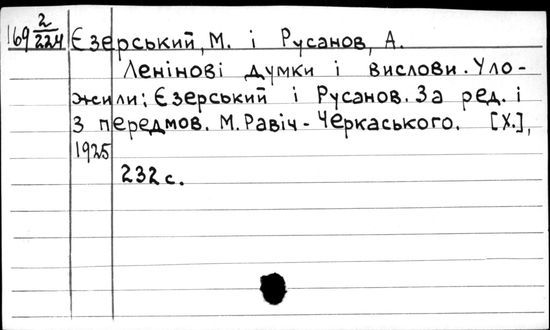 169 2/224 Єзерський, М. і Русанов, А.
Ленінові думки і вислови. Уло-
жили: Єзерський і Русанов. За ред. і
з передмов. М. Равіч-Черкаського. [Х.],
1925
232 с.